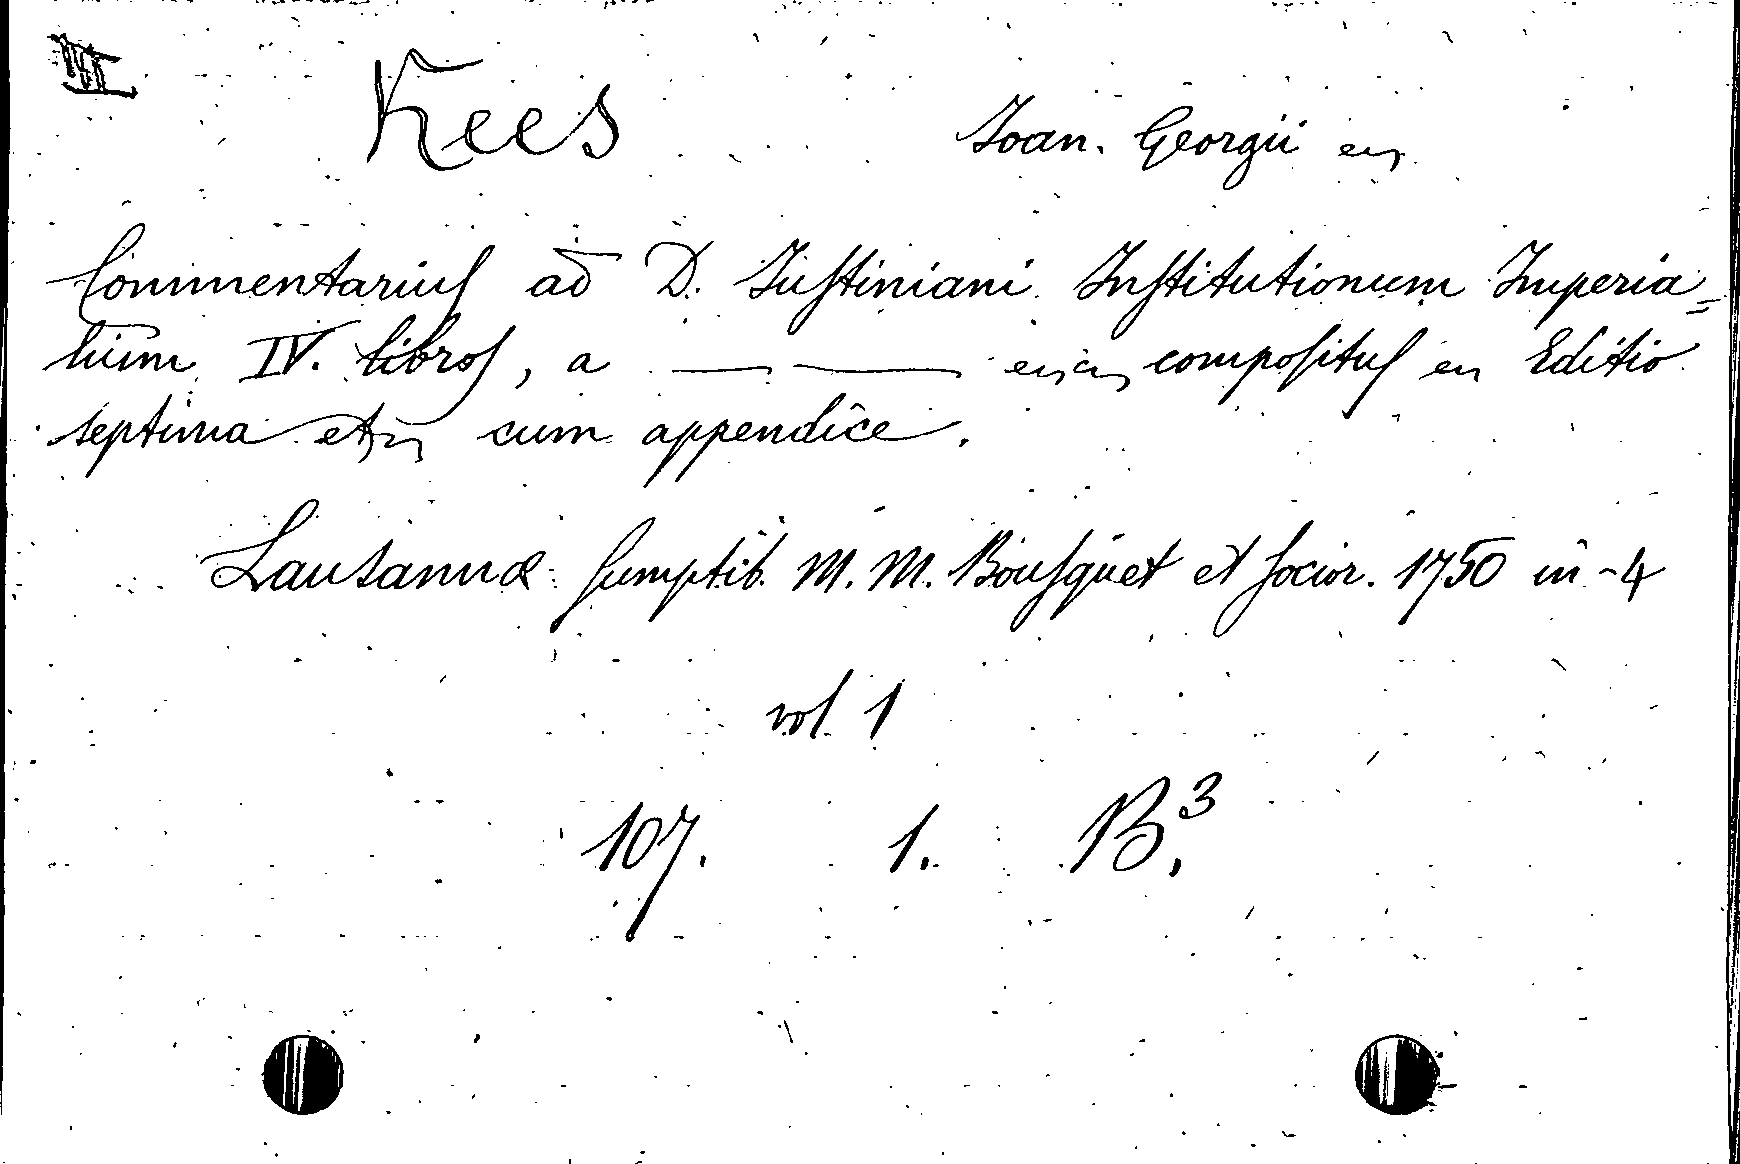 Kees Joan. Georgii
Commentariuſ ad D. Juſtiniani Inſtitutionum Imperia=
lium IV. libroſ, a —— —— compoſituſ Editio
septima cum appendice.
Lausannæ ſumptib. M. M. Bouſquet et ſocior. 1750 in-4
vol 1
107. 1. B.³